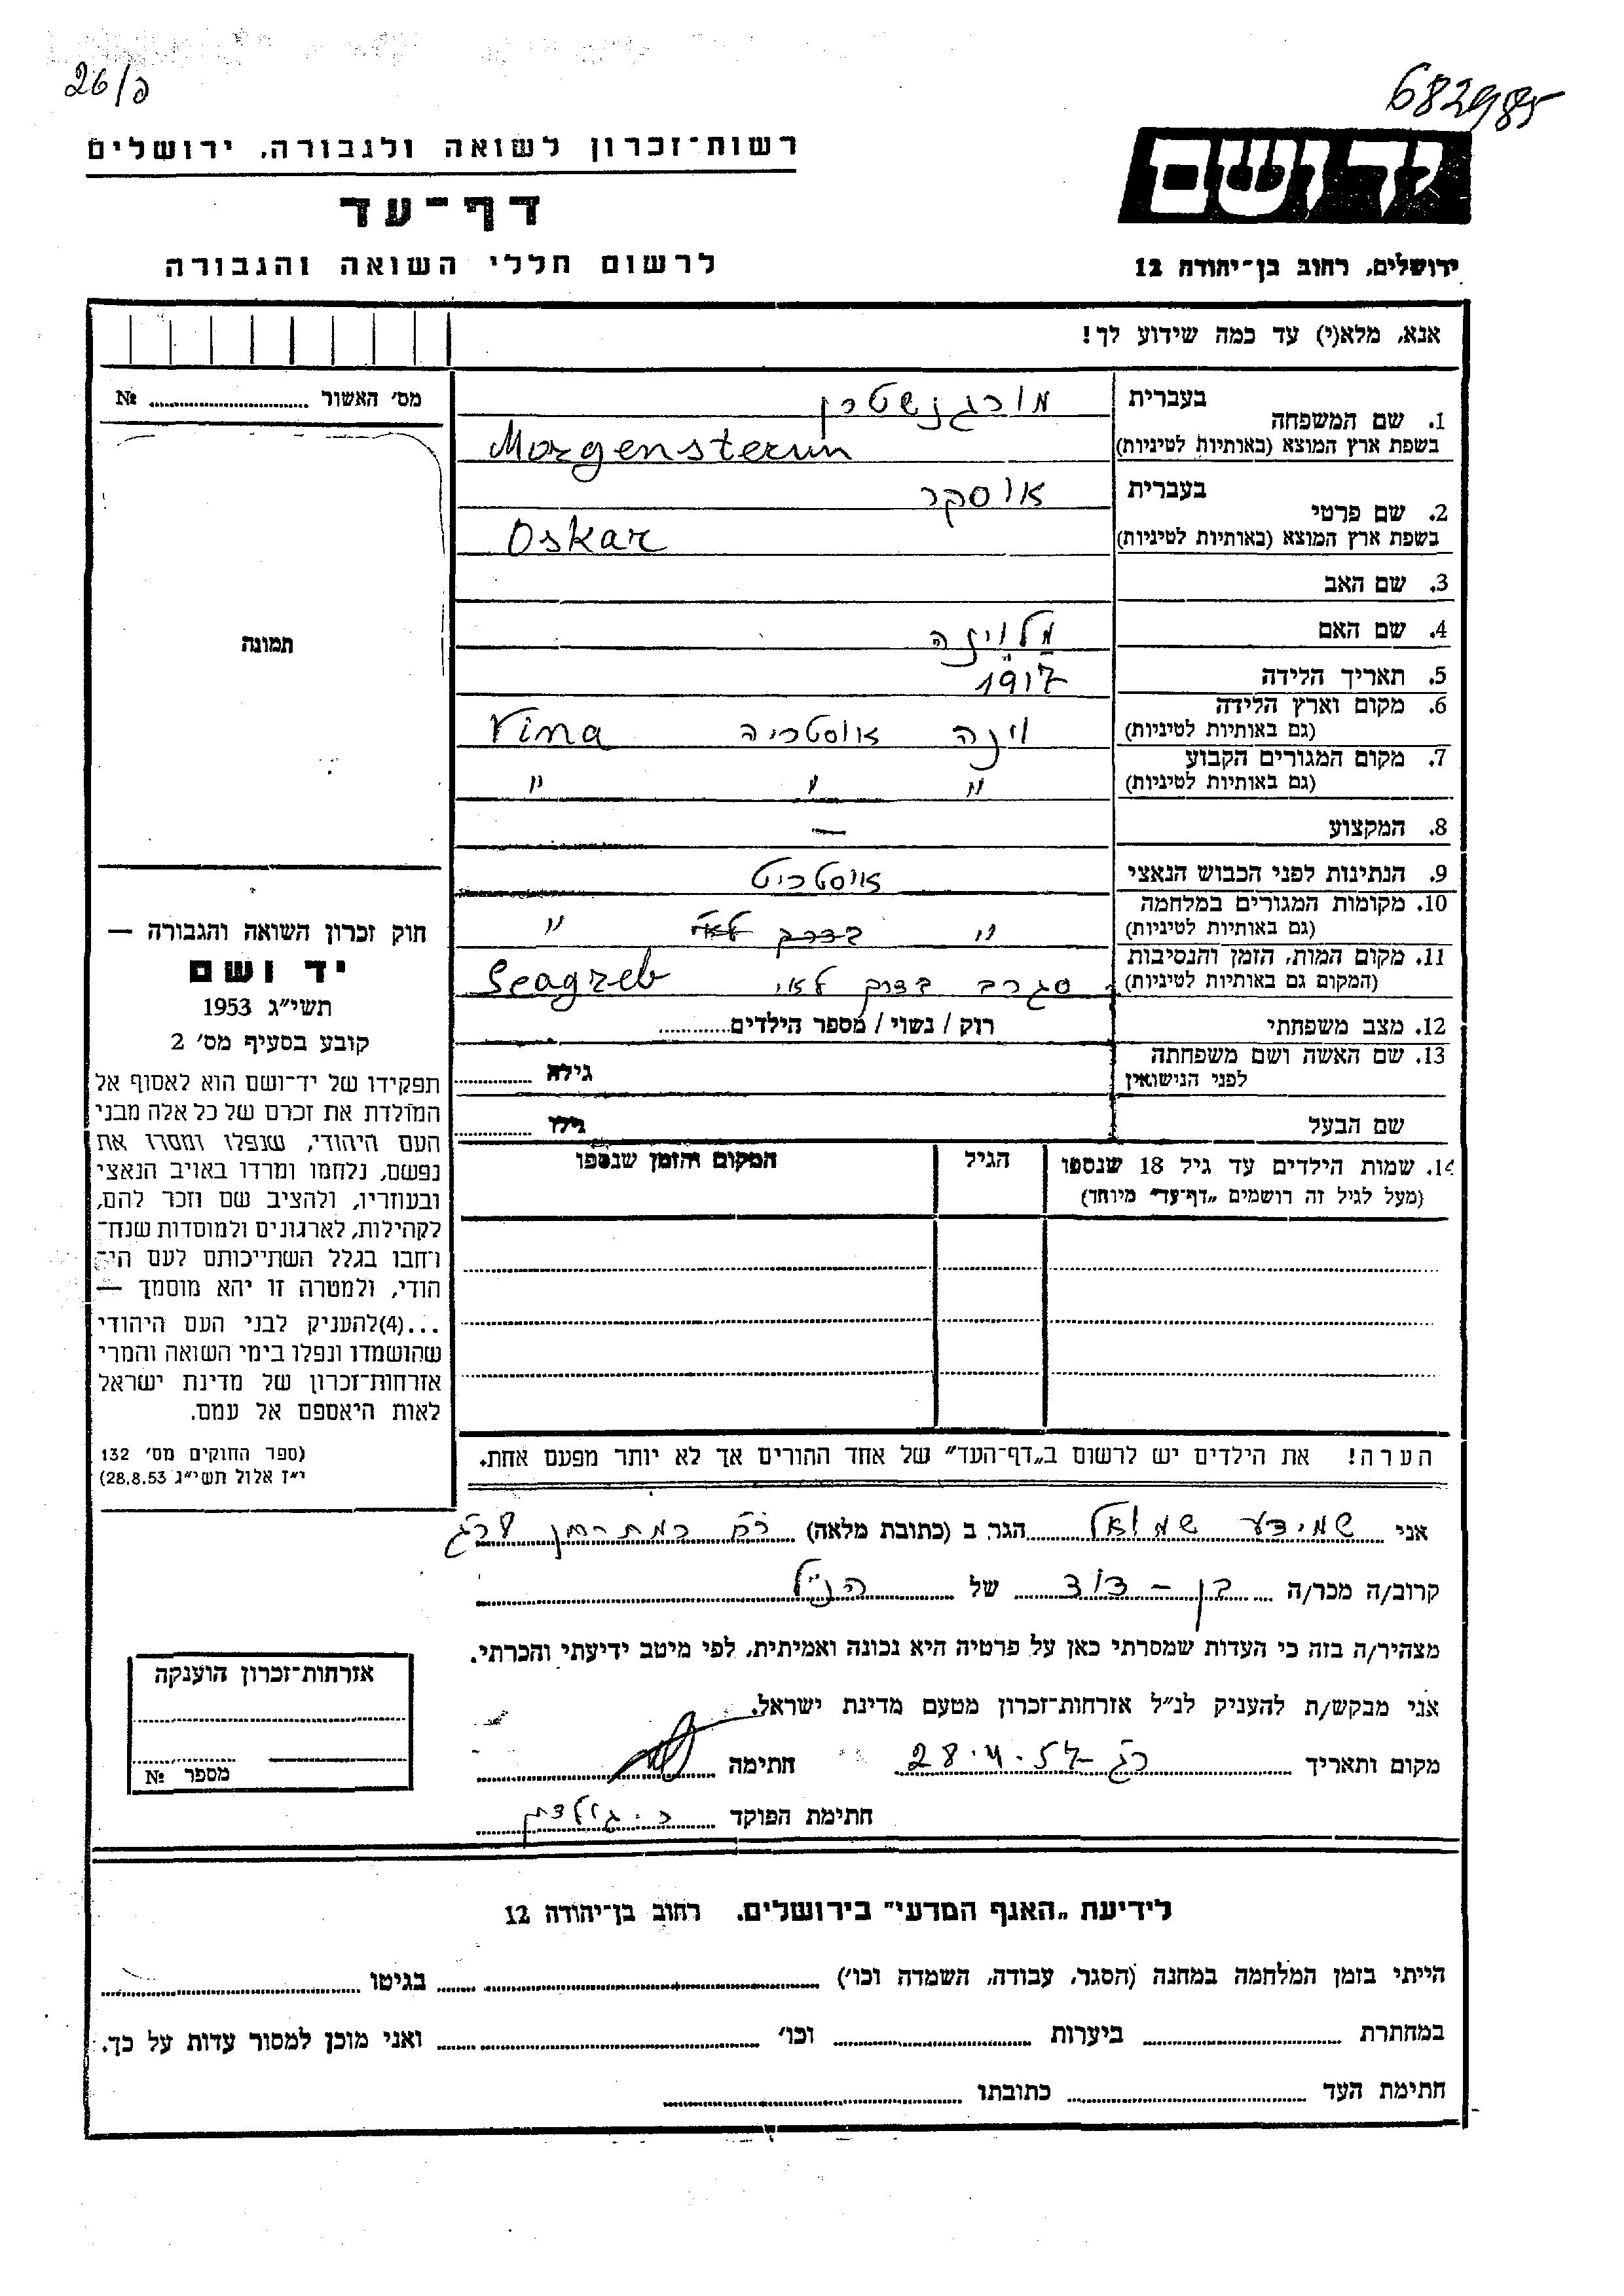 26/ג
682985
רשות־זכרון לשואה ולגבורה, ירושלים
דף־עד
לרשום חללי השואה והגבורה
יד ושם
ירושלים, רחוב בן־יהודה 12
אנא, מלא(י) עד כמה שידוע לך!
מס׳ האשור № 
תמונה
1. שם המשפחה בעברית מורגנשטרן
בשפת ארץ המוצא (באותיות לטיניות) Morgensterun
2. שם פרטי בעברית אוסקר
בשפת ארץ המוצא (באותיות לטיניות) Oskar
3. שם האב
4. שם האם מלוינה
5. תאריך הלידה 1917
6. מקום וארץ הלידה וינה אוסטריה Vina
(גם באותיות לטיניות)
7. מקום המגורים הקבוע
(גם באותיות לטיניות) " " "
8. המקצוע —
9. הנתינות לפני הכבוש הנאצי אוסטרית
10. מקומות המגורים במלחמה
(גם באותיות לטיניות) " "
11. מקום המות, הזמן והנסיבות
(המקום גם באותיות לטיניות) סגרב בדרך לאי Seagreb
12. מצב משפחתי רוק / נשוי / מספר הילדים
13. שם האשה ושם משפחתה
לפני הנישואין גילה
שם הבעל גילו
14. שמות הילדים עד גיל 18 שנספו הגיל המקום והזמן שנספו
(מעל לגיל זה רושמים „דף־עד" מיוחד)
הערה! את הילדים יש לרשום ב„דף־העד" של אחד ההורים אך לא יותר מפעם אחת.
חוק זכרון השואה והגבורה —
יד ושם
תשי״ג 1953
קובע בסעיף מס׳ 2
תפקידו של יד־ושם הוא לאסוף אל
המולדת את זכרם של כל אלה מבני
העם היהודי, שנפלו ומסרו את
נפשם, נלחמו ומרדו באויב הנאצי
ובעוזריו, ולהציב שם וזכר להם,
לקהילות, לארגונים ולמוסדות שנח־
רחבו בגלל השתייכותם לעם הי־
הודי, ולמטרה זו יהא מוסמך —
...(4)להעניק לבני העם היהודי
שהושמדו ונפלו בימי השואה והמרי
אזרחות־זכרון של מדינת ישראל
לאות היאספם אל עמם.
(ספר החוקים מס׳ 132
י״ז אלול תשי״ג 28.8.53)
אני שמידע שמואל הגר ב (כתובת מלאה)
קרוב/ה מכר/ה בן-דוד של הנ״ל
מצהיר/ה בזה כי העדות שמסרתי כאן על פרטיה היא נכונה ואמיתית, לפי מיטב ידיעתי והכרתי.
אני מבקש/ת להעניק לנ״ל אזרחות־זכרון מטעם מדינת ישראל.
מקום ותאריך רג 28.4.57 חתימה
חתימת הפוקד
אזרחות־זכרון הוענקה
מספר №
לידיעת „האגף המדעי" בירושלים, רחוב בן־יהודה 12
הייתי בזמן המלחמה במחנה (הסגר, עבודה, השמדה וכו׳) בגיטו
במחתרת ביערות וכו׳ ואני מוכן למסור עדות על כך.
חתימת העד כתובתו